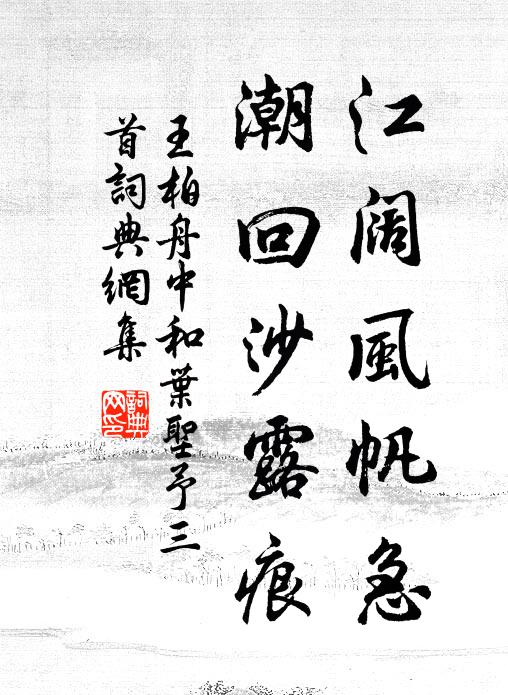 江阔風帆急
潮回沙露痕
王柏舟中和葉聖予三
首詞典網集
詞典网印